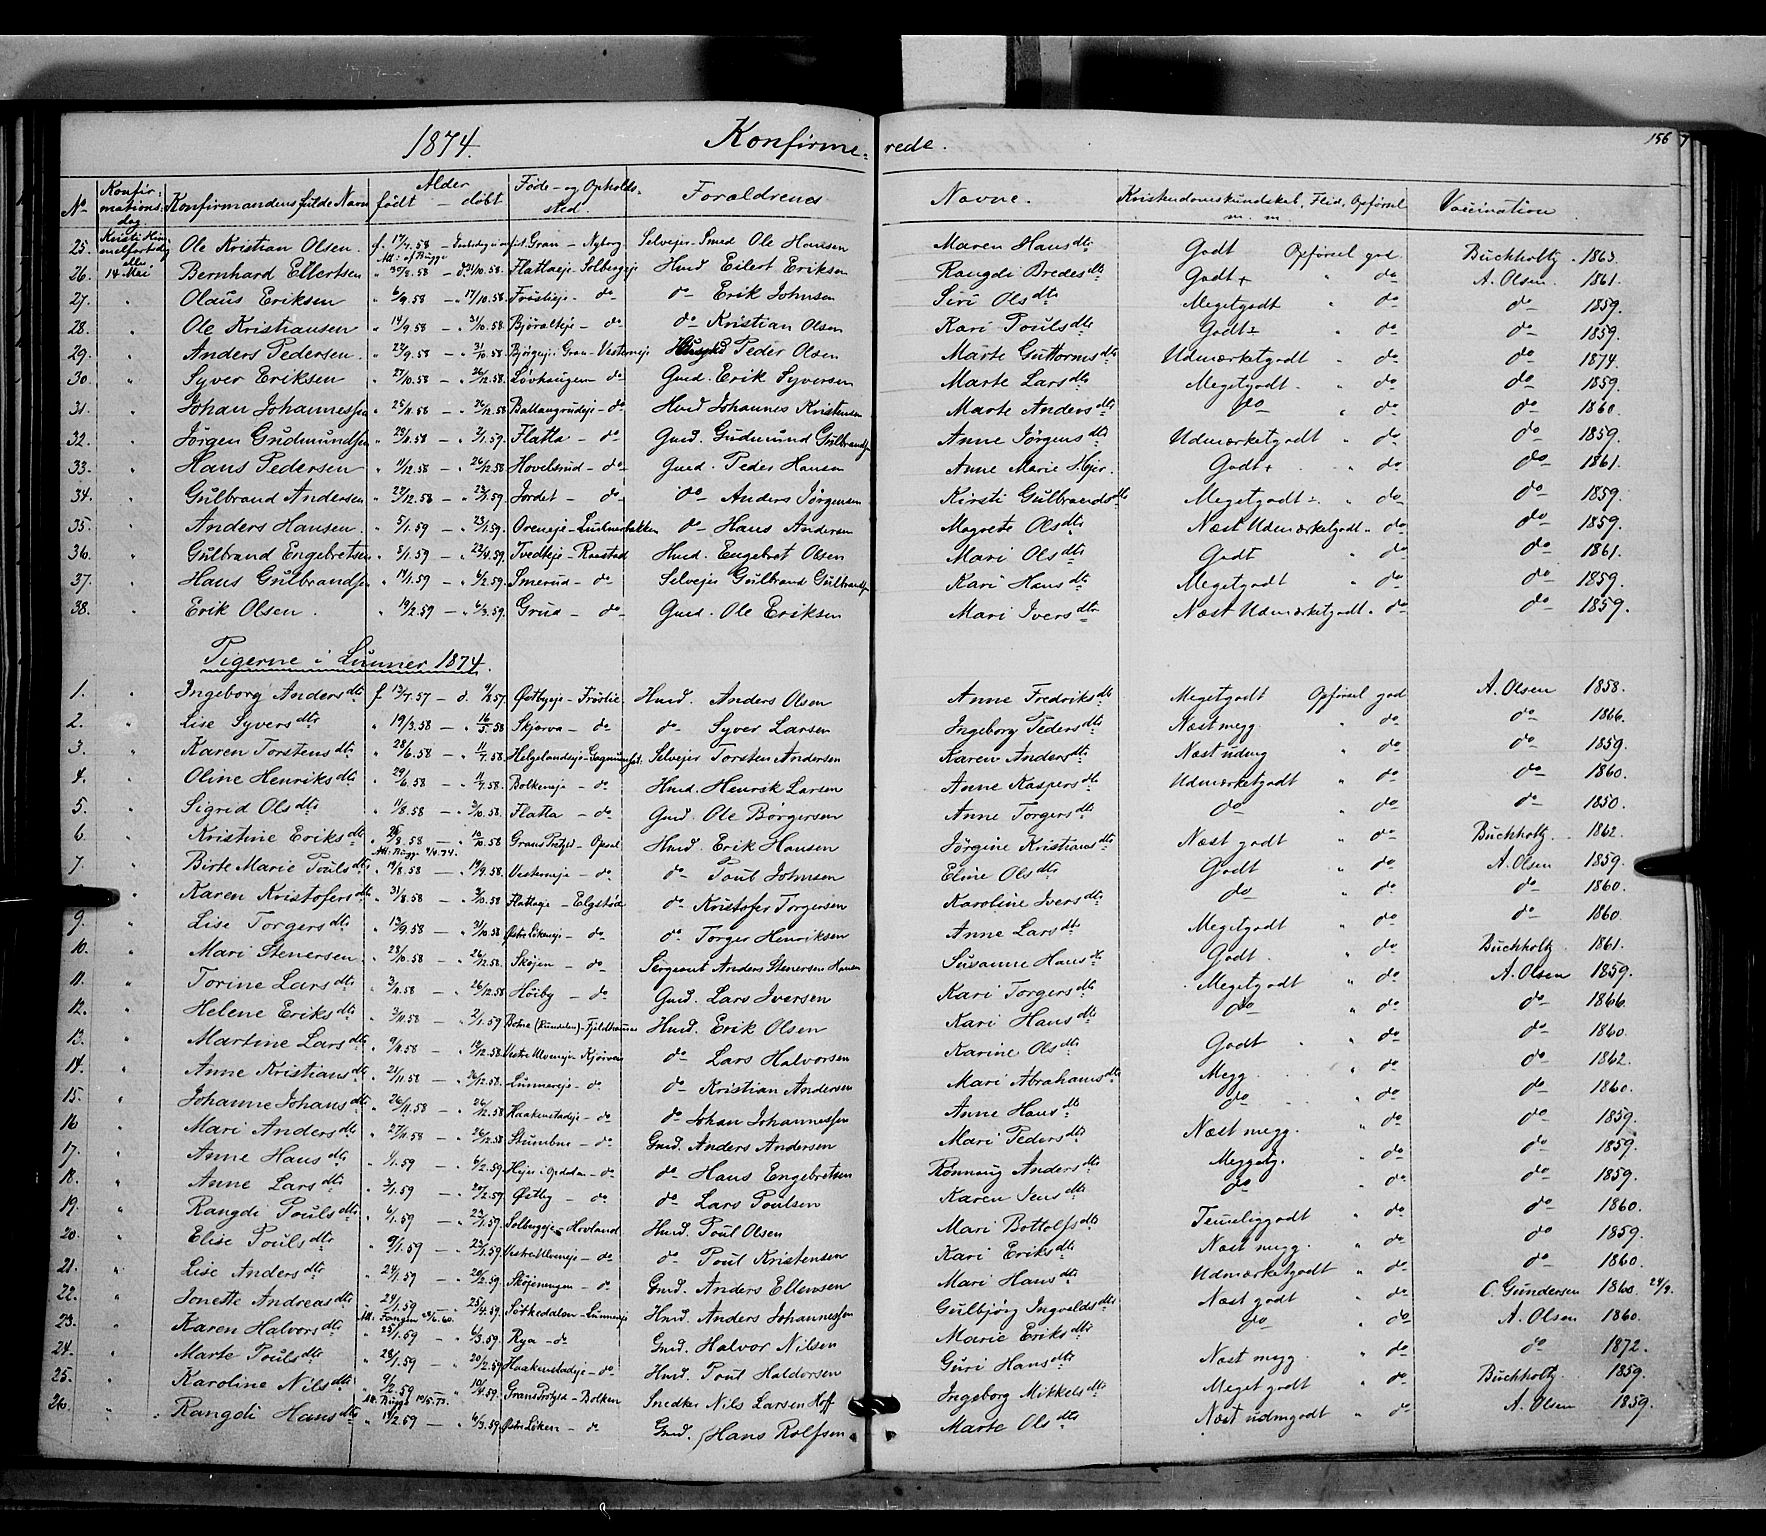 1874. Konfirme- rede. 156
No Konfirmations dag Konfirmandens fulde Navn Alder født — døbt Føde- og Opholdssted. Forældrenes Navne. Kristendomskundskab, Flid, Opførsel m. m. Vaccination
25. Kristi Himmelfartsdag Ole Kristian Olsen. f. 17/4.58 Gran - Nyborg Selvejer Smed Ole Hansen Maren Hansdtr Godt Opførsel god Buchholtz 1863.
26. 14 Mai Bernhard Ellertsen " 30/8.58 — d. 31/10.58 Flattaeje - Solbergeje Husd. Eilert Eriksen Rangdi Bredesdtr Godt+ " do A. Olsen 1861.
27. " Olaus Eriksen " 6/9.58 — " 17/10.58 Frøslieeje - do do Erik Johnsen Siri Olsdtr Megetgodt " do do 1859.
28. " Ole Kristiansen " 14/9.58 — " 31/10.58 Bjøralteje - do do Kristian Olsen Kari Poulsdtr Godt± " do do 1859.
29. " Anders Pedersen " 22/9.58 — " 31/10.58 Bjørgeje i Gran - Vesterneje Peder Olsen Marte Guttormsdtr Udmærketgodt " do do 1874.
30. " Syver Eriksen " 27/10.58 — " 26/12.58 Løvhaugen - do Gmd. Erik Syversen Marte Larsdtr Megetgodt " do do 1859.
31. " Johan Johannessen " 25/11.58 — " 26/12.58 Ballangrudeje - do Husd Johannes Kristensen Marte Andersdtr do " do do 1860.
32. " Jørgen Gudmundsen " 29/11.58 — " 2/1.59 Flatla - do Gmd. Gudmund Gulbrandsen Anne Jørgensdtr Udmærketgodt " do do 1859.
33. " Hans Pedersen " 11/12.58 — " 26/12.58 Hovelsrud - do Gmd. Peder Hansen Anne Marie Hejer. Godt+ " do do 1861.
34. " Gulbrand Andersen " 27/12.58 — " 23/1.59 Jordet - do do Anders Jørgensen Kirsti Gulbrandsdtr Megetgodt÷ " do do 1859.
35. " Anders Hansen. " 5/1.59 — " 23/1.59. Oreneje - Lunnerbakken do Hans Andersen Magrete Olsdtr Næst Udmærketgodt " do do 1859.
36. " Gulbrand Engebretsen " 5/1.59 — " 25/4.59. Tvedteje - Raastad Husd. Engebret Olsen Mari Olsdtr Godt " do do 1861.
37. " Hans Gulbrandsen " 14/1.59 — " 6/2.59. Smerud - do Selvejer Gulbrand Gulbrandsen Kari Hansdtr Megetgodt " do do 1859.
38. " Erik Olsen. " 19/2.59 — " 6/3.59. Grua - do Gmd. Ole Eriksen Mari Iversdtr Næst Udmærketgodt " do do 1859.
Pigerne i Lunner 1874.
1. " Ingeborg Andersdtr f. 13/7.57 — d. 9/8.57. Østbyeje - Frøslie Husd. Anders Olsen Anne Fredriksdtr Megetgodt Opførsel god A. Olsen 1858.
2. " Lise Syversdtr " 19/3.58 — " 16/5.58 Skjerva - do do Syver Larsen Ingeborg Pedersdtr Næst megg. " do do 1866.
3. " Karen Torstensdtr " 28/6.58 — " 11/7.58 Helgelandseje - Selvejer Torsten Andersen Karen Andersdtr Næst udmg " do do 1859.
4. " Oline Henriksdtr " 29/6.58 — " 11/7.58. Bolkeneje - do Husd. Henrik Larsen Anne Kaspersdtr Udmærketgodt " do do 1860.
5. " Sigrid Olsdtr " 11/8.58 — " 3/10.58. Flatla - do Gmd. Ole Børgersen Anne Torgersdtr do " do do 1850.
6. " Kristine Eriksdtr " 25/8.58 — " 10/10.58 Grans Prstgd - Opsal Husd. Erik Hansen Jørgine Kristiansdtr Næst godt " do Buchholtz 1862.
7. " Birte Marie Poulsdtr " 19/8.58 — " 19/9.58 Vesterneje - do do Poul Johnsen Eline Olsdtr Godt " do A. Olsen 1859.
" Karen Kristofersdtr " 31/8.58 — " 3/10.58 Flattaeje - Elgstøa do Kristofer Torgersen Karoline Iversdtr do " do do 1860.
9. " Lise Torgersdtr " 13/9.58 — " 31/10.58 Østre Løkeneje - do do Torger Henriksen Anne Larsdtr Megetgodt " do do 1860.
10. " Mari Stenersen " 28/10.58 — " 26/12.58 Skøjen - do Sergeant Anders Stenersen Hansen Susanne Hansdtr Godt. " do Buchholtz 1861.
11. " Torine Larsdtr " 3/11.58 — " 26/12.58 Høiby - do Gmd. Lars Iversen Kari Torgersdtr Megetgodt " do A. Olsen 1859.
12. " Helene Eriksdtr " 3/11.58 — " 2/1.59 Husd. Erik Olsen Kari Hansdtr do " do do 1866.
13. " Martine Larsdtr " 9/11.58 — " 19/12.58 Vestre Ulveneje - Kjørven do Lars Halvorsen Karine Olsdtr Godt " do do 1860.
14. " Anne Kristiansdtr " 21/11.58 — " 26/12.58. Lunnereje - do do Kristian Andersen Mari Abrahamsdtr Megg. " do do 1862.
15. " Johanne Johansdtr " 26/11.58 — " 26/12.58 Haakenstadeje - do do Johan Johannessen Anne Hansdtr do " do do 1860.
16 " Mari Andersdtr " 27/11.58 — " 26/12.58 Stumbne - do Gmd. Anders Andersen Mari Pedersdtr Næst megg. " do do 1859.
17. " Anne Hansdtr " 1/1.59 — " 6/2.59. Hejer i Opdalen - do do Hans Engebretsen Rønnaug Andersdtr Meggetg. " do do 1859.
18. " Anne Larsdtr " 3/1.59 — " 20/2.59 Østby - do do Lars Poulsen Karen Jensdtr do " do do 1859.
19. " Rangdi Poulsdtr " 6/1.59 — " 23/1.59. Solbergeje - Hovland Husd. Poul Olsen Mari Bottolfsdtr Temeliggodt " do do 1860.
20. Elise Poulsdtr " 9/1.59 — " 23/1.59. Vestre Ulveneje - do do Poul Kristensen Kari Eriksdtr Næst megg. " do do 1859.
21. " Lise Andersdtr " 24/1.59 — " 20/2.59. Skøjenengen - do Gmd. Anders Ellensen Mari Hansdtr Udmærketgodt " do do 1860.
22. " Jonette Andreasdtr " 24/1.59 — " 25/4.59. Sotkedalen - Lunnereje Husd. Anders Johannessen Gulbjørg Ingvaldsdtr Næst godt " do C. Gundersen 1860. 24/9.
23. " Karen Halvorsdtr " 25/1.59 — " 6/3.59. Rya - do Gmd. Halvor Nilsen Marie Eriksdtr do " do A. Olsen 1860.
24. " Marte Poulsdtr " 28/1.59 — " 20/2.59 Haakenstadeje - do Husd. Poul Haldorsen Guri Hansdtr Næst megg. " do do 1872.
25. " Karoline Nilsdtr " 9/2.59 — " 10/4.59. Grans Prstgd - Bolken Snedker Nils Larsen Hoff Ingeborg Mikkelsdtr Meget godt " do Buchholtz 1859.
26. " Rangdi Hansdtr " 14/2.59 — " 6/3.59 Østre Løken - do Gmd. Hans Rolfsen Marte Olsdtr Næst udmgodt " do A. Olsen 1859.